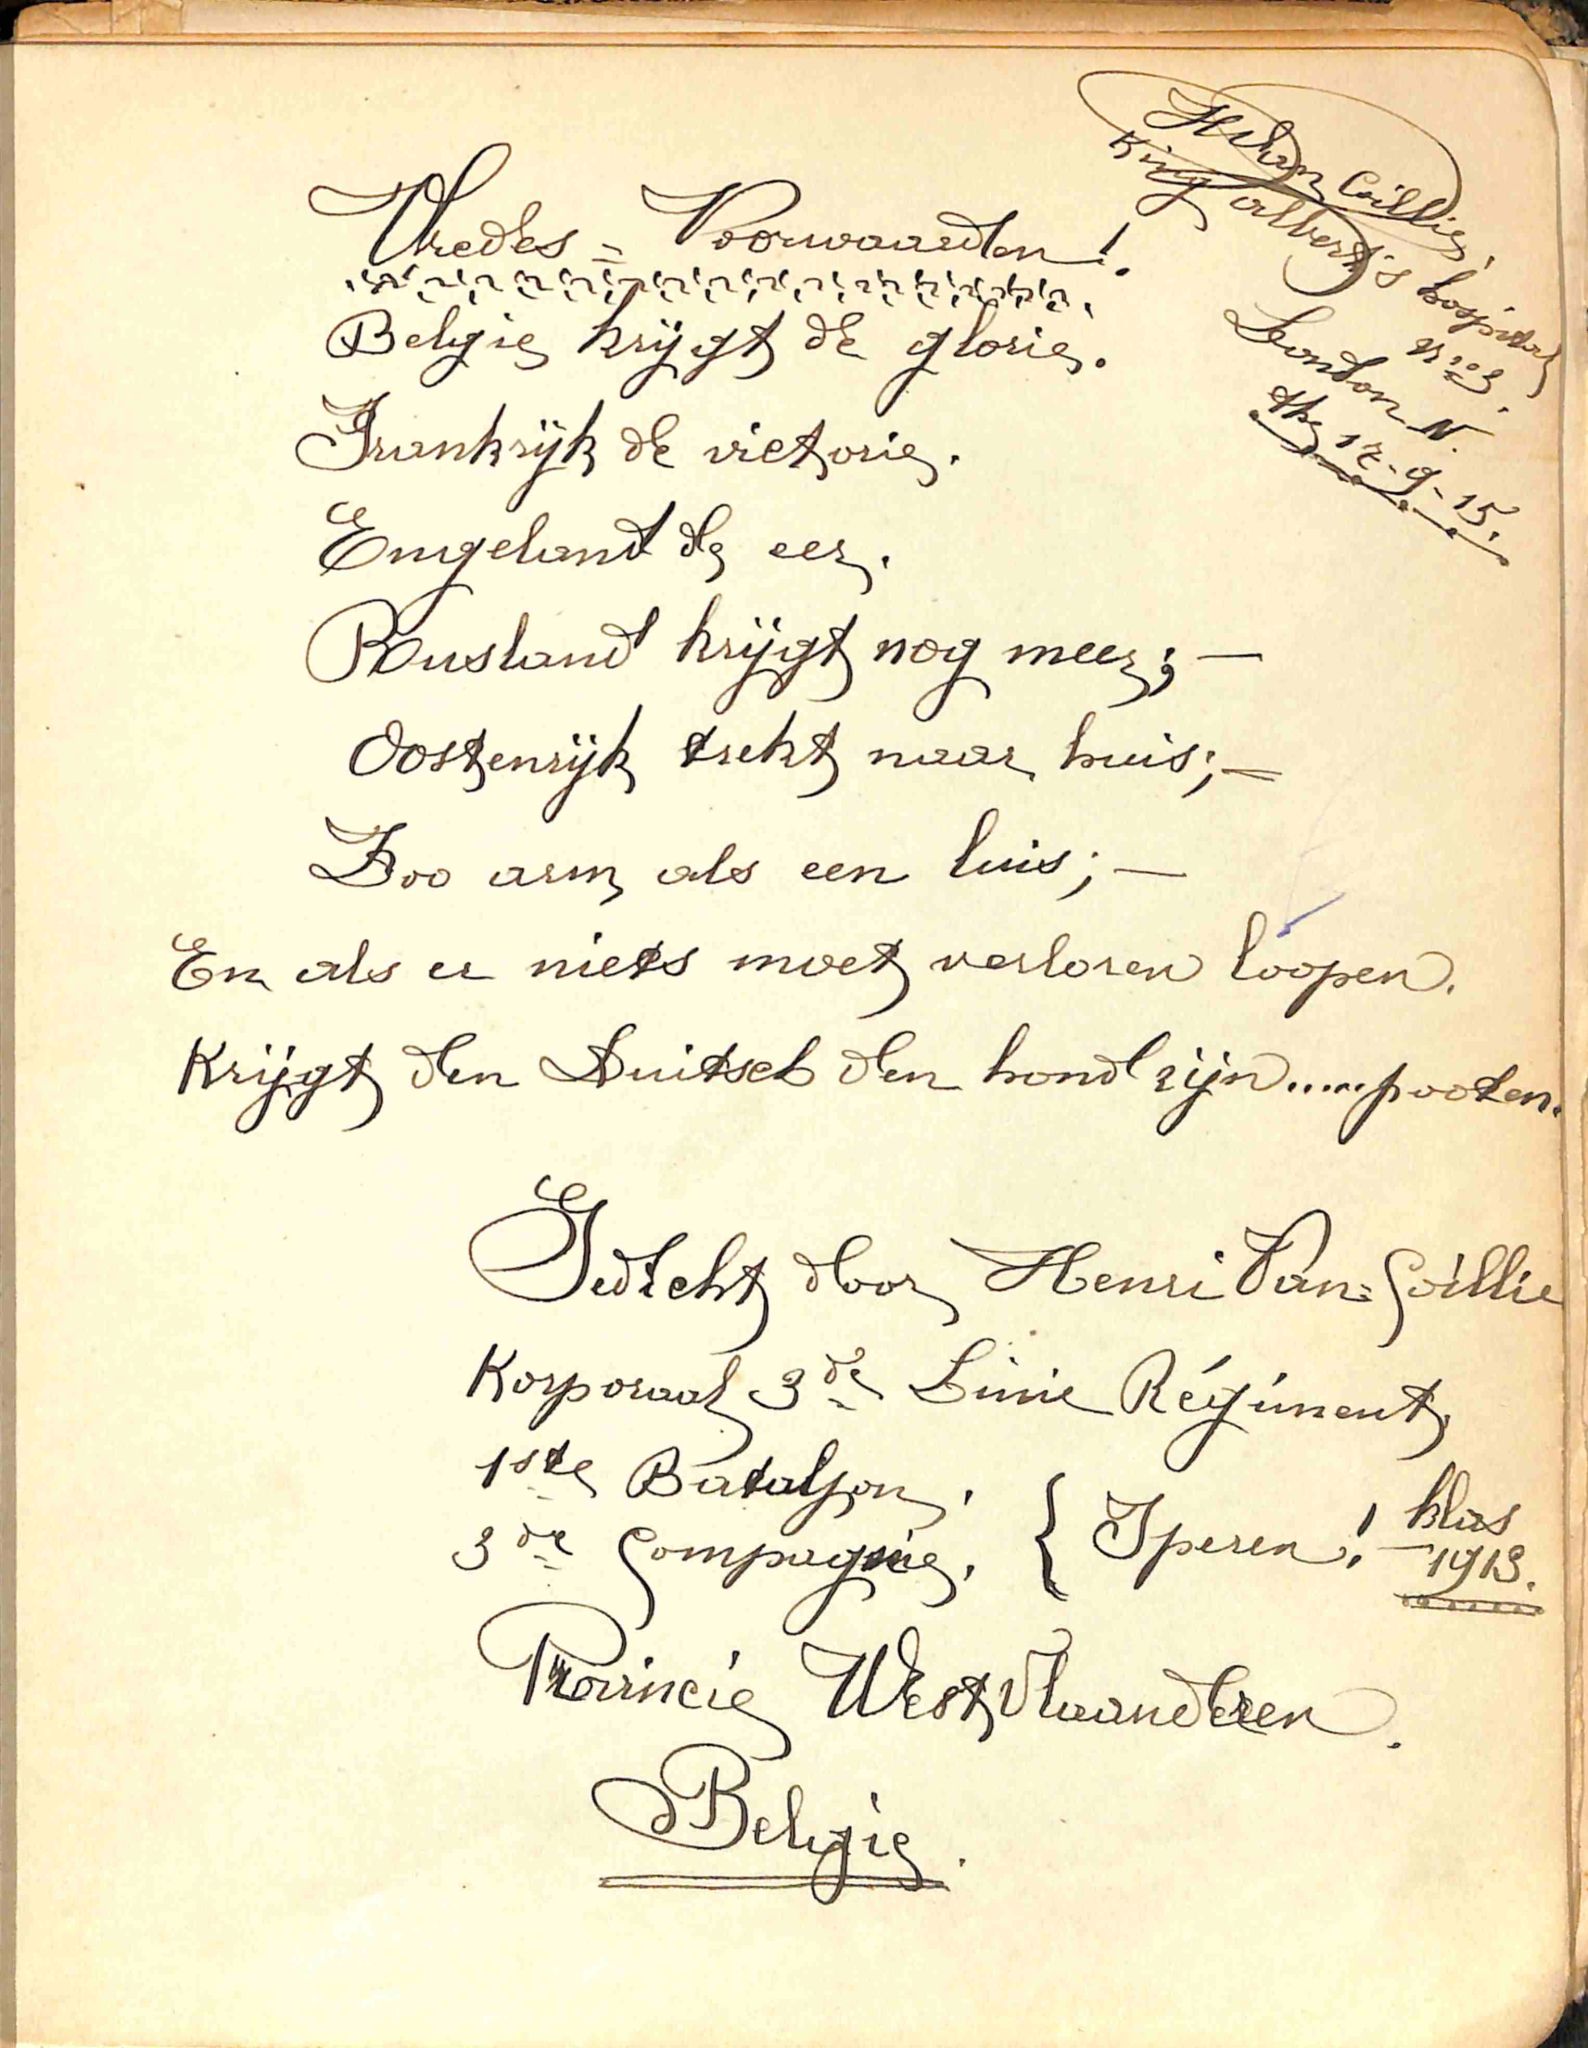 Vredes = Voorwaarden!
België krijgt de glorie.
Frankrijk de victorie.
Engeland de eer.
Rusland krijgt nog meer; —
Oostenrijk trekt naar huis; —
Zoo arm als een luis; —
En als er niets moet verloren loopen.
Krijgt den Duitsch den hond zijn.....pooten.
Gedicht door Henri Van=Coillie
Korporaal 3de Linie Régiment,
1ste Bataljon,
3de Compagnie, { Iperen! — klas 1913.
Provincie West Vlaanderen.
Belgie.
HVan Coillie,
King Albert's hospital
No 3.
London N.
the 17-9-15.